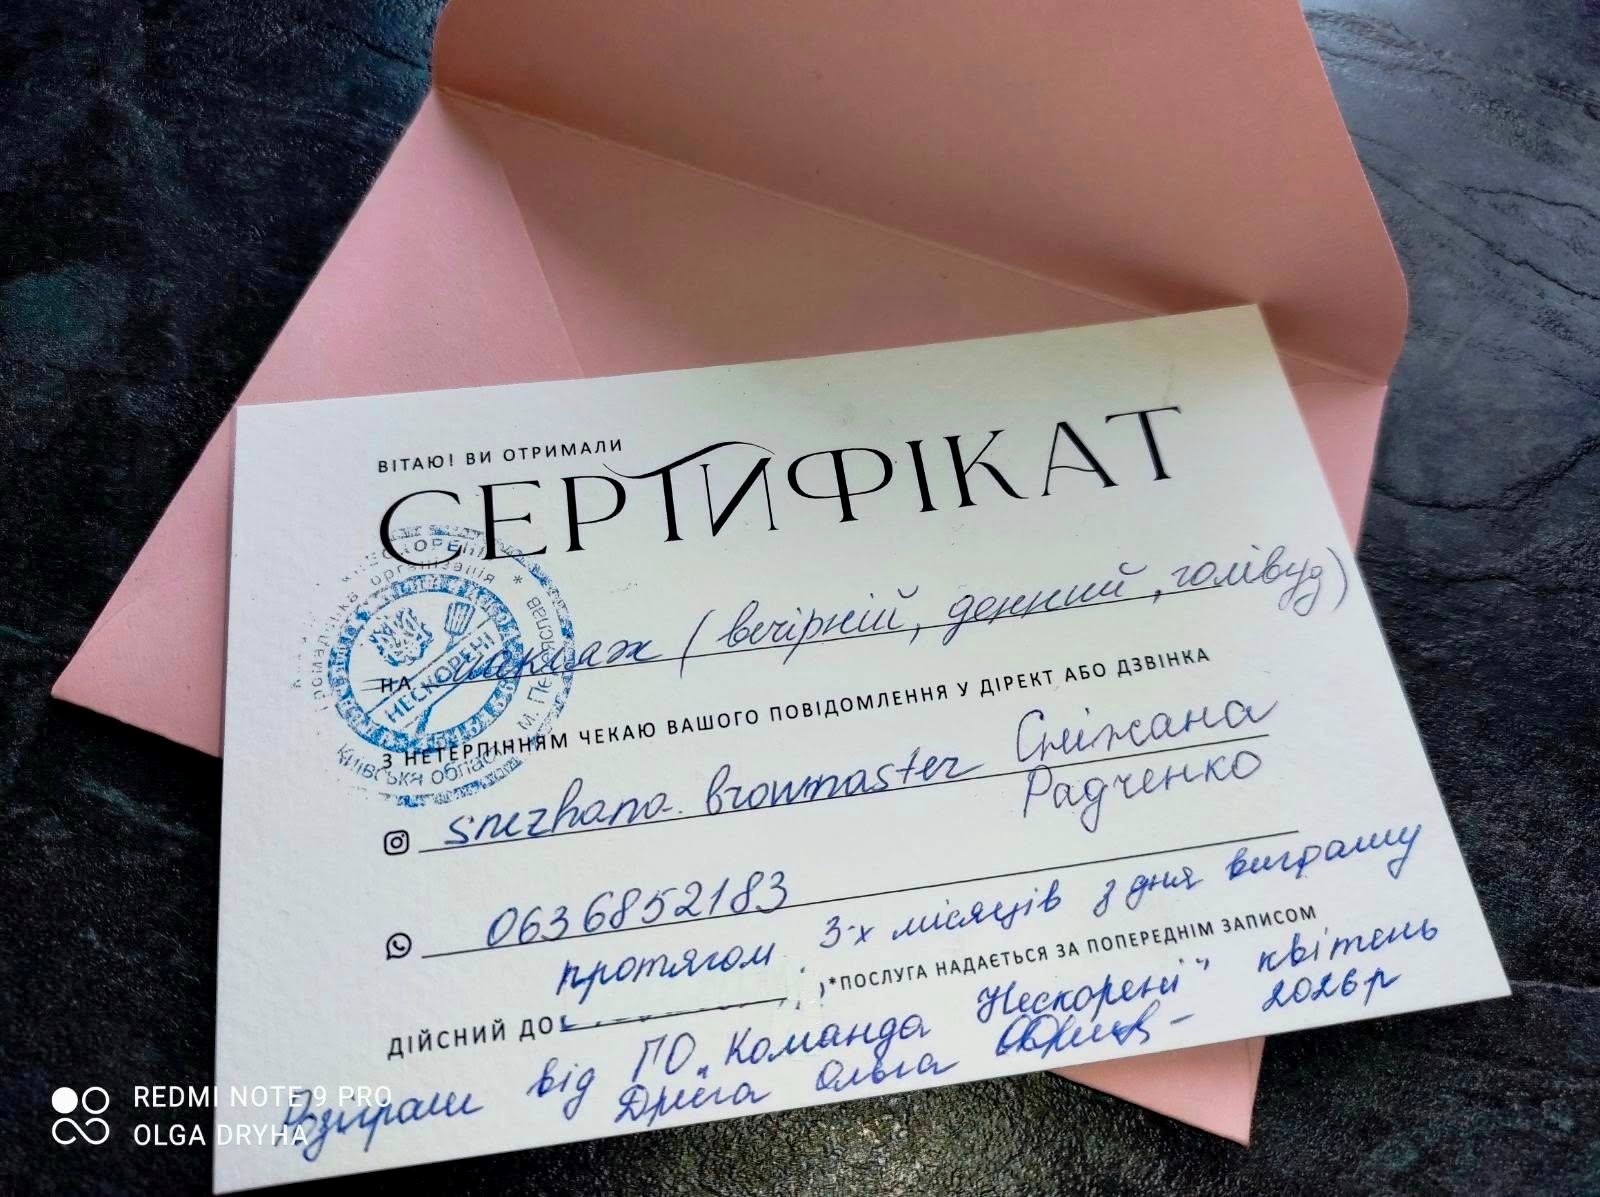 ВІТАЮ! ВИ ОТРИМАЛИ
СЕРТИФІКАТ
НА макіяж (вечірній, денний, голівуд)
З НЕТЕРПІННЯМ ЧЕКАЮ ВАШОГО ПОВІДОМЛЕННЯ У ДІРЕКТ АБО ДЗВІНКА
snezhana.browmaster Сніжана
Радченко
0636852183
протягом 3-х місяців з дня виграшу
ДІЙСНИЙ ДО *ПОСЛУГА НАДАЄТЬСЯ ЗА ПОПЕРЕДНІМ ЗАПИСОМ
Розіграш від ГО „Команда Нескорені" квітень
Дрига Ольга 2026р
НЕСКОРЕНІ
організація
НЕСКОРЕНІ
Київська область
REDMI NOTE 9 PRO
OLGA DRYHA